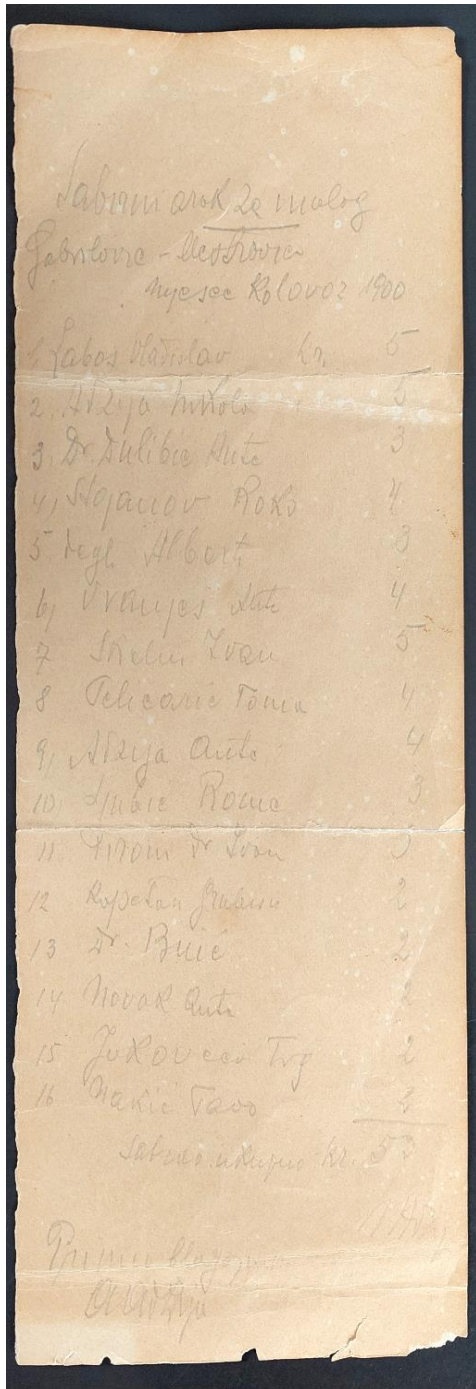 Sabirni arak za malog
Gabrilovic - Mestrovica
mjesec Kolovoz 1900
1 Labos Vladislav kr. 5
2. Adzija Nikola 5
3, Dr. Dulibic Ante 3
4, Stojanov Roko 4
5 degl Alberti 3
6, Vranjes Ante 4
7 Ivan 5
8 Pelicaric Toma 4
9, Adzija Ante 4
10, Ljubic Rome 3
11 Dr Ivan 3
12 Kapetan 2
13 Dr. Buic 2
14 Novak Ante 2
15 Trg 2
16 Nakic 2
Sabrao ukupno kr. 53
Primio
Adzija